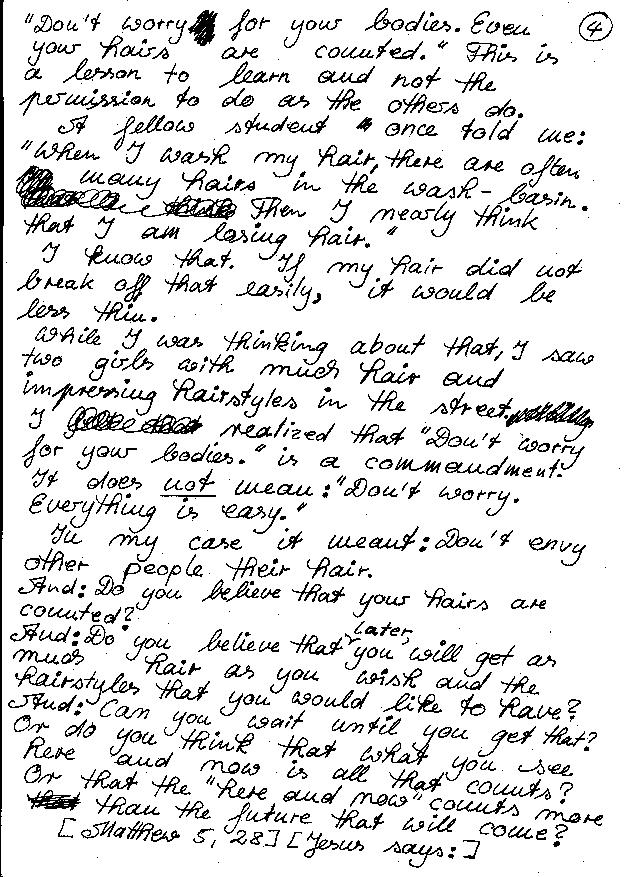 "Don't worry for your bodies. Even ④
your hairs are counted." This is
a lesson to learn and not the
permission to do as the others do.
A fellow student once told me:
"When I wash my hair, there are often
many hairs in the wash-basin.
Then I nearly think
that I am losing hair."
I know that. If my hair did not
break off that easily, it would be
less thin.
While I was thinking about that, I saw
two girls with much hair and
impressing hairstyles in the street.
I realized that "Don't worry
for your bodies." is a commandment.
It does not mean: "Don't worry.
Everything is easy."
In my case it meant: Don't envy
other people their hair.
And: Do you believe that your hairs are
counted?
And: Do you believe that later, you will get as
much hair as you wish and the
hairstyles that you would like to have?
And: Can you wait until you get that?
Or do you think that what you see
here and now is all that counts?
Or that the "here and now" counts more
than the future that will come?
[Matthew 5, 28] [Jesus says:]